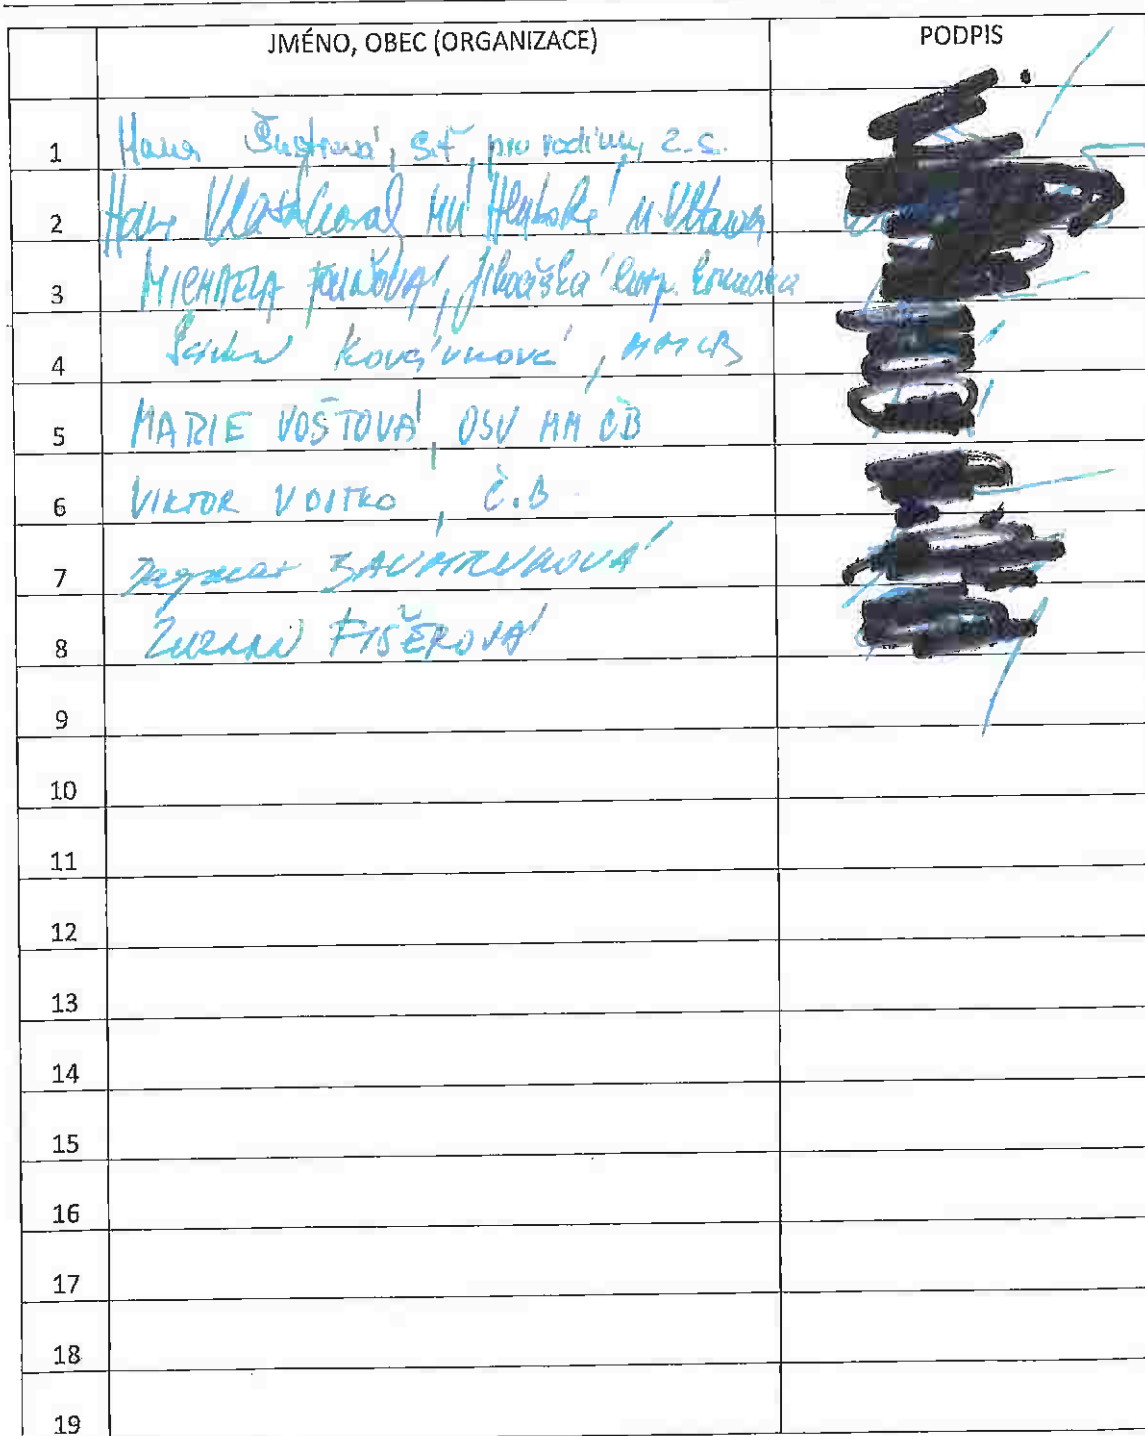 JMÉNO, OBEC (ORGANIZACE) PODPIS
1 Hana Šustrová, Síť pro rodinu, z.s.
2 Hana MÚ Hluboká n Vltavou
3 MICHAELA Jihočeská komora
4 Kovaříková, MMČB
5 MARIE VOŠTOVÁ, OSV MM ČB
6 VIKTOR VOJTKO, Č.B
7 Dagmar
8 ZUZANA FIŠEROVÁ
9
10
11
12
13
14
15
16
17
18
19